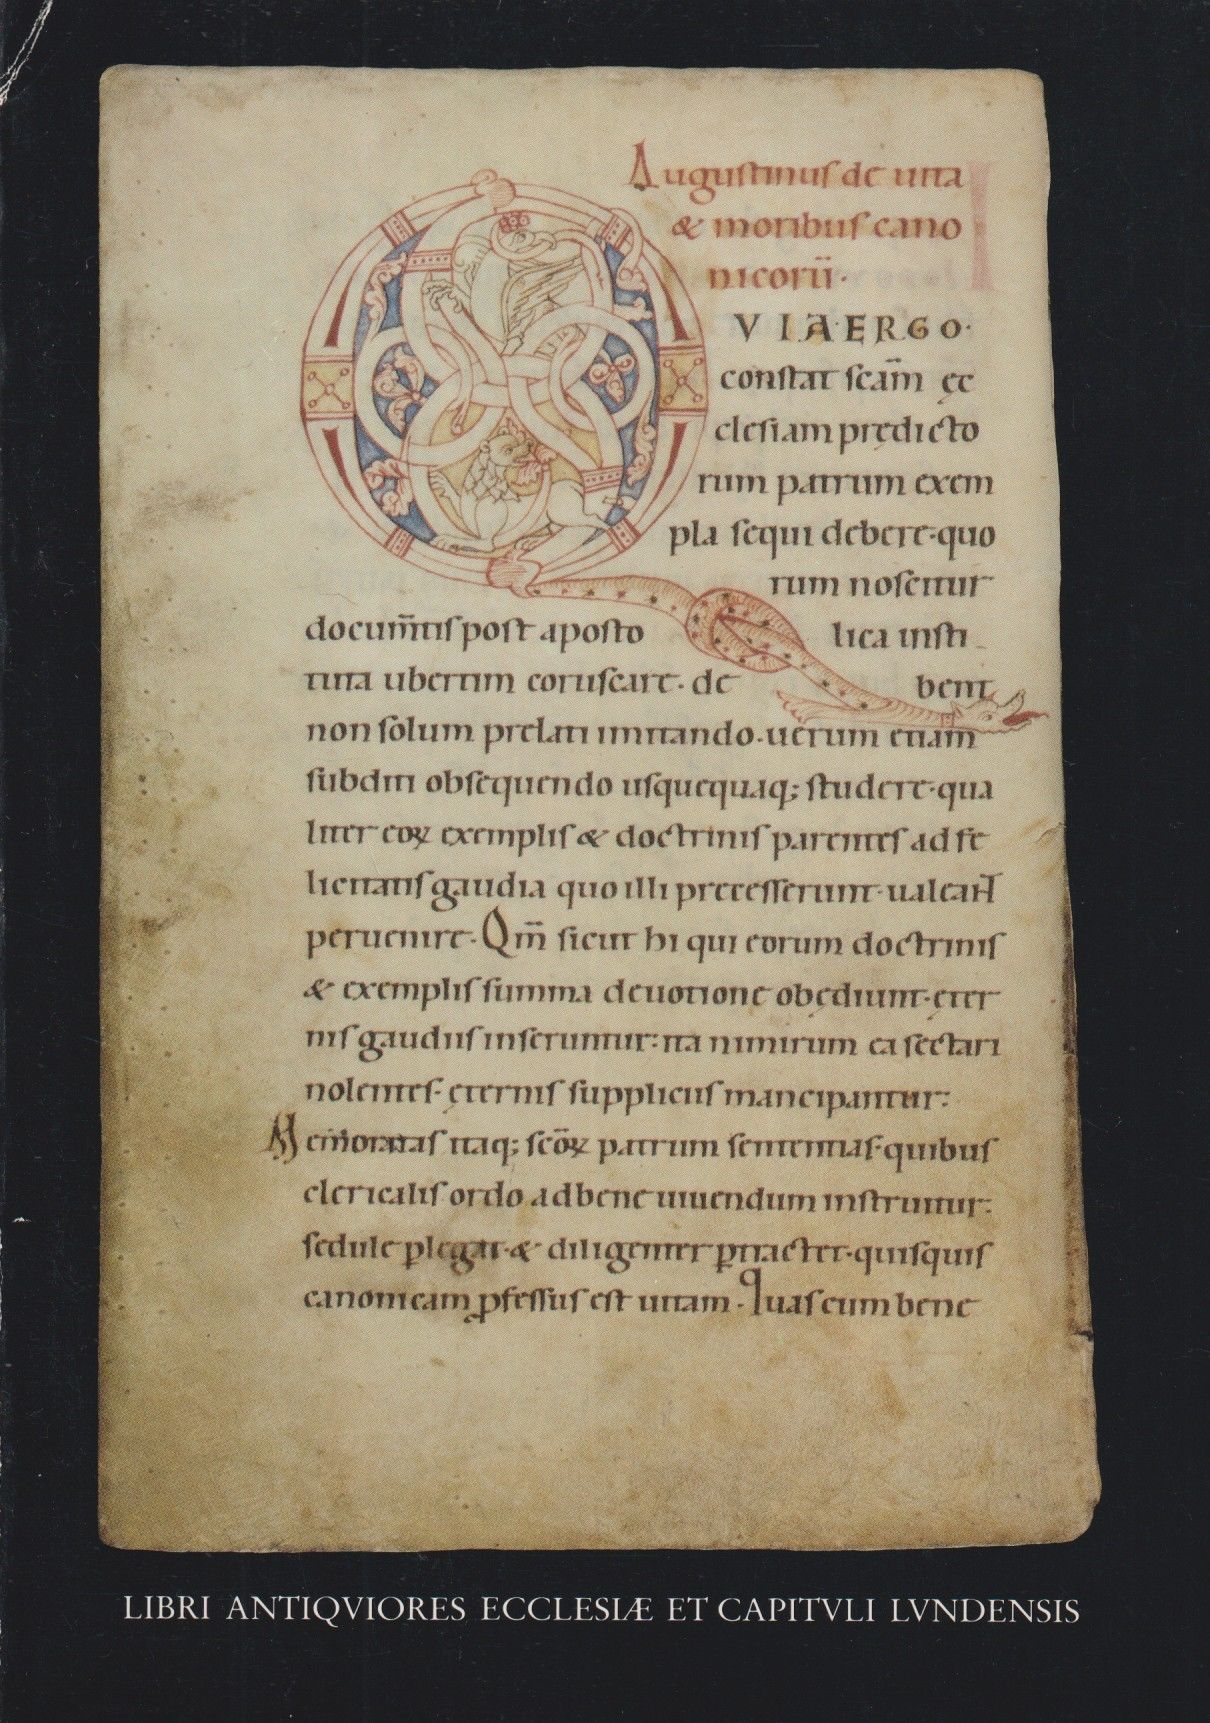 Augustinus de uita
& moribus cano
nicorū·
VIA·ERGO·
constat scām ęc
clesiam prędicto
rum patrum exem
pla sequi debere·quo
rum noscitur
docum̄tis post aposto lica insti
tuta ubertim coruscare·de bent
non solum prelati imitando·uerum etiam
subditi obsequendo usquequaq; studere·qua
liter eoꝝ exemplis & doctrinis parentes ad fe
licitatis gaudia quo illi precesserunt·ualeant
peruenire·Qm̄ sicut hi qui eorum doctrinis
& exemplis summa deuotione obędiunt·ęter
nis gaudiis inseruntur: ita nimirum ea sectari
nolentes·ęternis suppliciis mancipantur:
Memoratas itaq; scōꝝ patrum sententias·quibus
clericalis ordo ad bene uiuendum instruitur:
sedule ꝑlegat·& diligenter ꝑtractet·quisquis
canonicam ꝓfessus est uitam·Quas cum bene
LIBRI ANTIQVIORES ECCLESIÆ ET CAPITVLI LVNDENSIS